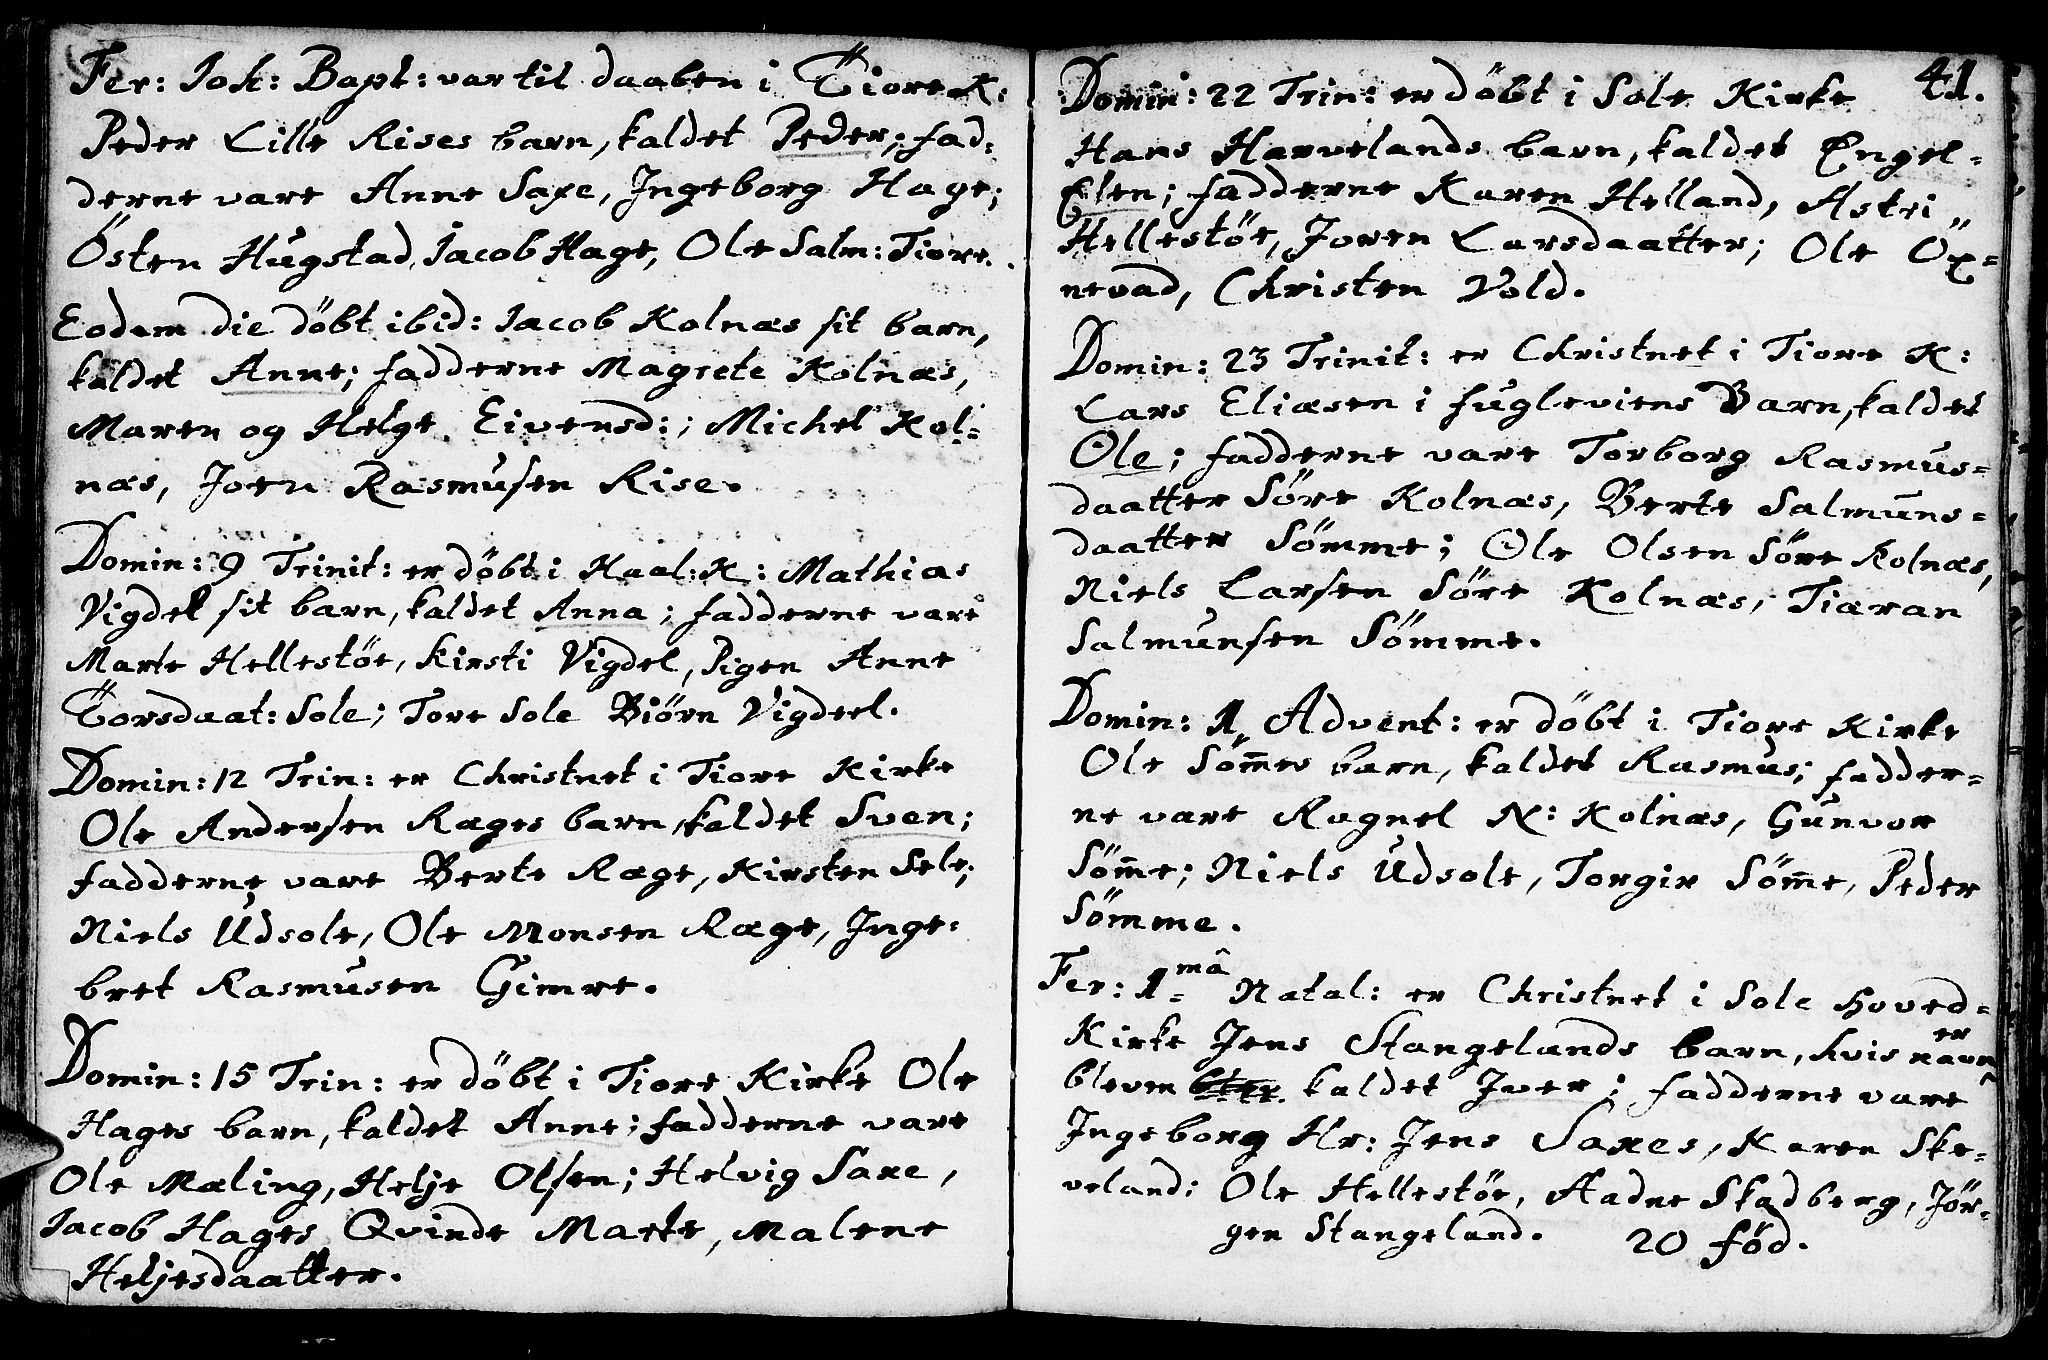 Fer: Joh: Bapt: var til daaben i Tiore K:
Peder Lille Rises barn, kaldet Peder; fad:
derne vare Anne Saxe, Ingeborg Hage;
Östen Hugstad, Jacob Hage, Ole Salm: Tiore.
Eodem die döbt ibid: Jacob Kolnæs sit barn,
kaldet Anne; fadderne Magrete Kolnæs,
Maren og Helge Eivensd:; Michel Kol=
næs, Joen Rasmusen Rise.
Domin: 9 Trinit: er döbt i Haal: K: Mathias
Vigdel sit barn, kaldet Anna; fadderne vare
Marte Hellestöe, Kirsti Vigdel, Pigen Anne
Torsdaat: Sole; Tore Sole Biörn Vigdeel.
Domin: 12 Trin: er Christnet i Tiore Kirke
Ole Andersen Ræges barn, kaldet Sven;
fadderne vare Berte Ræge, Kirsten Sele;
Niels Udsole, Ole Monsen Ræge, Inge:
bret Rasmusen Gimre.
Domin: 15 Trin: er döbt i Tiore Kirke Ole
Hages barn, kaldet Anne; fadderne vare
Ole Mæling, Helje Olsen; Helvig Saxe,
Jacob Hages Qvinde Marte, Malene
Heljesdaatter.
41.
Domin: 22 Trin: er döbt i Sole Kirke
Hans Harvelands barn, kaldet Engel=
Elen; fadderne Karen Helland, Astri
Hellestöe, Joren Larsdaatter; Ole Öx=
nevad, Christen Vold.
Domin: 23 Trinit: er Christnet i Tiore K:
Lars Eliæsen i fugleviens Barn, kaldet
Ole; fadderne vare Torborg Rasmus=
daatter Söre Kolnæs, Berte Salmuns=
daatter Sömme; Ole Olsen Söre Kolnæs,
Niels Larsen Söre Kolnæs, Tiæran
Salmunsen Sömme.
Domin: 1 Advent: er döbt i Tiore Kirke
Ole Som̅es barn, kaldet Rasmus; fadder=
ne vare Ragnel N: Kolnæs, Gunvor
Söm̅e; Niels Udsole, Torgir Söm̅e, Peder
Sömme.
Fer: 1mâ Natal: er Christnet i Sole Hoved=
Kirke Jens Stangelands barn, hvis navn er
bleven kaldet Iver; fadderne vare
Ingeborg Hr: Jens Saxes, Karen Ske=
veland; Ole Hellestöe, Aadne Skadberg, Jör=
gen Stangeland. 20 föd.